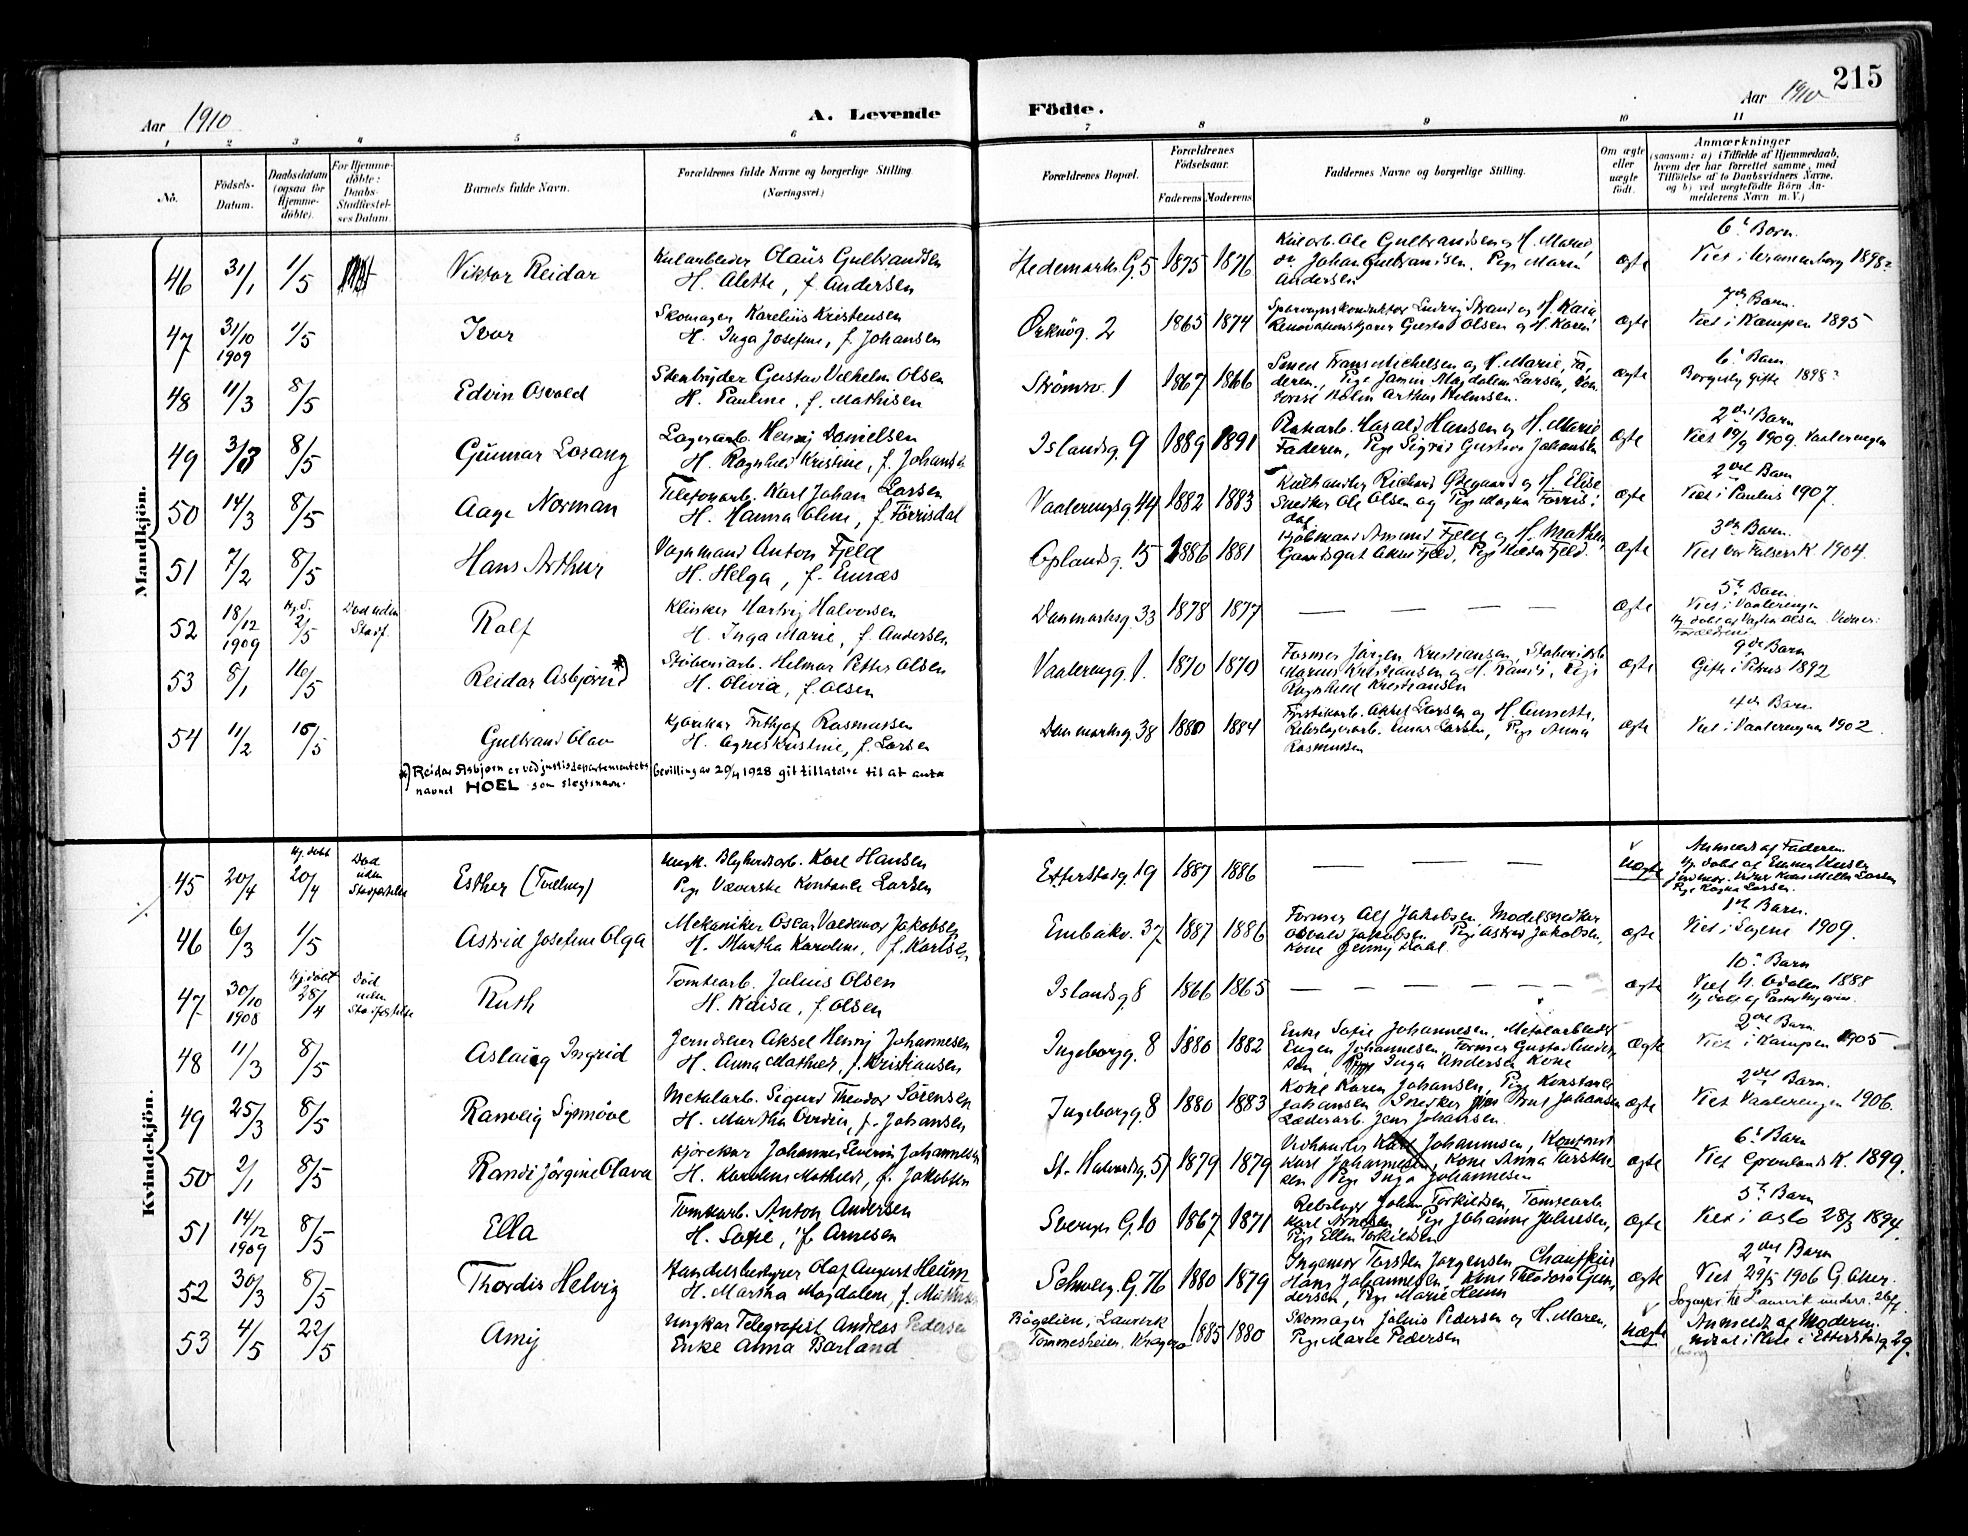 Aar 1910
A. Levende
Födte.
Aar 1910
215
1 2 3 4 5 6 7 8 9 10 11
No.
Födsels-
Datum.
Daabsdatum
(ogsaa for
Hjemme-
döbte).
For Hjemme-
döbte:
Daabs-
Stadfæstel-
ses Datum.
Barnets fulde Navn.
Forældrenes fulde Navne og borgerlige Stilling
(Næringsvei.)
Forældrenes Bopæl.
Forældrenes
Födselsaar.
Faderens Moderens
Faddernes Navne og borgerlige Stilling
Om ægte
eller
uægte
födt.
Anmærkninger
(saasom: a) i Tilfælde af Hjemmedaab,
hvem der har forrettet samme, med
Tilföielse af to Daabsvidners Navne,
og b) ved uægtefödte Börn An-
melderens Navn m. V.)
Mandkjön.
46 31/1 1/5 Viktor Reidar
Olaus Gulbrandsen
H. Alette, f. Andersen
Hedemarks G. 5 1875 1876
Andersen
ægte
6te Barn.
47 31/10 1909 1/5 Ivar
Skomager Karelius Kristensen
H. Inga Josefine, f. Johansen
Örknög. 2 1865 1874
Gustav Olsen og H. Karen
ægte
7de Barn.
Viet i Kampen 1895
48 11/3 8/5 Edvin Osvald
Stenbryder Gustav Vilhelm Olsen
H. Pauline, f. Mathisen
Strömsv. 1 1867 1866
Smed Frans Michelsen og H. Marie, Fa-
deren, Pige Magdalene Larsen,
Arthur Holmsen.
ægte
6te Barn
Gifte 1898?
49 8/5 Gunnar Lorang
Lagerarb. Henrij Danielsen
H. Ragnhild Kristine, f. Johansen
Islandsg. 9 1889 1891
Harald Hansen og H. Marie
Faderen, Pige Sigrid Gustava Johansen
ægte
2det Barn
Viet 19/9 1909. Vaalerengen
50 14/3 8/5 Aage Norman
Telefonarb. Karl Johan Larsen
H. Hanna Oline, f. Förrisdal
Vaalerengsg. 44 1882 1883
Richard Östgaard og H. Elise
Snedker Ole Olsen og Pige Magna Förris-
dal
ægte
2det Barn
Viet i Paulus 1907.
51 7/2 8/5 Hans Arthur
Vognmand Anton Fjeld
H. Helga, f. Emræs
Oplandsg. 15 1886 1881
ægte
3die Barn.
1904.
52 18/12 1909 Hj. d. 2/5 Död uden Stadf. Rolf
Klinker Hartvig Halvorsen
H. Inga Marie, f. Andersen
Danmarksg. 33 1878 1877
— — — —
ægte
5te Barn
Viet i Vaalerengen
Hj. döbt af Olsen. Vidner:
Forældrene
53 8/1 16/5 Reidar Asbjörn *)
Störberiarb. Helmar Petter Olsen
H. Olivia, f. Olsen
Vaalerengg. 1. 1870 1870
Former Jörgen Kristiansen,
Marius Kristiansen og H. Pige
Ragnhild Kristiansen
ægte
9de Barn
Gifte i Petrus 1892
54 11/2 16/5 Gulbrand Olav
Kjörekar Frithjof Rasmussen
H. Agnes Kristine, f. Larsen
Danmarksg. 38 1880 1884
Fyrstikarb. Aksel Larsen og H. Annette,
Einar Larsen, Pige Anna
Rasmussen
ægte
4de Barn
Viet i Vaalerengen 1902.
*) Reidar Asbjörn er ved justisdepartementets bevilling av 29/9 1928 git tillatelse til at anta
navnet HOEL som slegtsnavn.
Kvindekjön.
45 20/4 Hj. döbt 20/4 Död uden Stadfæstelse Esther (Tvilling)
Ungk. Karl Hansen
Pige Væverske Konstanse Larsen
Etterstadg. 19 1887 1886
— — — —
uægte
Anmeldt af Faderen
Pige Larsen.
46 6/3 1/5 Astrid Josefine Olga
Mekaniker Oscar Valdemar Jakobsen
H. Martha Karoline, f. Karlsen
Enebakv. 37 1887 1886
Former Alf Jakobsen, Modelsnedker
Osvald Jakobsen Pige Astrid Jakobsen,
Kone Jenny Dahl
ægte
1ste Barn.
Viet i Sagene 1909.
47 30/10 1908 Hj. döbt 28/4 Död uden Stadfæstelse Ruth
Tomtearb. Julius Olsen
H. Kaisa, f. Olsen
Islandsg 8 1866 1865
— — — — — —
ægte
10de Barn
Viet N. Odalen 1888
48 11/3 8/5 Aslaug Ingrid
Jerndreier Aksel Henrij Johannesen
H. Anna Mathilde, f. Kristiansen
Ingeborgg. 8 1880 1882
Enke Sofie Johannesen, Metalarbeider
Eugen Johannesen, Former Gustav Ander-
sen, Inga Andersen Kone
ægte
2det Barn.
Viet i Kampen 1905
49 25/3 8/5 Ranveig Synnöve
Metalarb. Sigurd Theodor Sörensen
H. Martha Ovidia, f. Johansen
Ingeborgg. 8 1880 1883
Kone Karen Johansen, Pige Konstanse
Johansen Snedker Johansen
Læderarb. Jens Johansen
ægte
2det Barn.
Viet Vaalerengen 1906.
50 2/1 8/5 Randi Jörgine Olava
Kjörekar Johannes Severin Johannesen
H. Karoline Mathilde, f. Jakobsen
St. Halvardsg. 57 1879 1879
Vedhandler Karl Johannesen, Kontorist
Karl Johannesen, Kone Anna Torsten-
sen Pige Inga Johannesen
ægte
6te Barn
Viet Grönlands K. 1899.
51 14/12 1909 8/5 Ella
Tomtearb. Anton Andersen
H. Sofie, f. Arnesen
Sverges G. 10 1867 1871
Rebslager Johan Torkildsen, Tomtearb.
Karl Arnesen, Pige Johanne Johnsen,
Pige Ellen Torkildsen
ægte
5te Barn
Viet i Oslo 28/3 1894.
52 30/3 8/5 Thordis Helvig
Handelsbestyrer Olaf August Heum
H. Martha Magdalene, f.
Schweig. G. 76 1880 1879
Ingeniör Torsten Jörgensen Chauffeur
Hans Johannesen, Kone Theodora Gun-
dersen, Pige Marie Heum
ægte
2det Barn
Viet 29/5 1906 G. Aker.
53 4/5 22/5 Amy
Ungkar Telegrafist Andreas Pedersen
Enke Anna Barland
Bögelien, Laurvik
Tommesheien, Kragerö
1885 1880
Skomager Julius Pedersen og H. Maren,
Pige Marie Pedersen
uægte
Sognepr. til Laurvik underr. 26/7.
Anmeldt af Moderen.
Etterstadg 29.